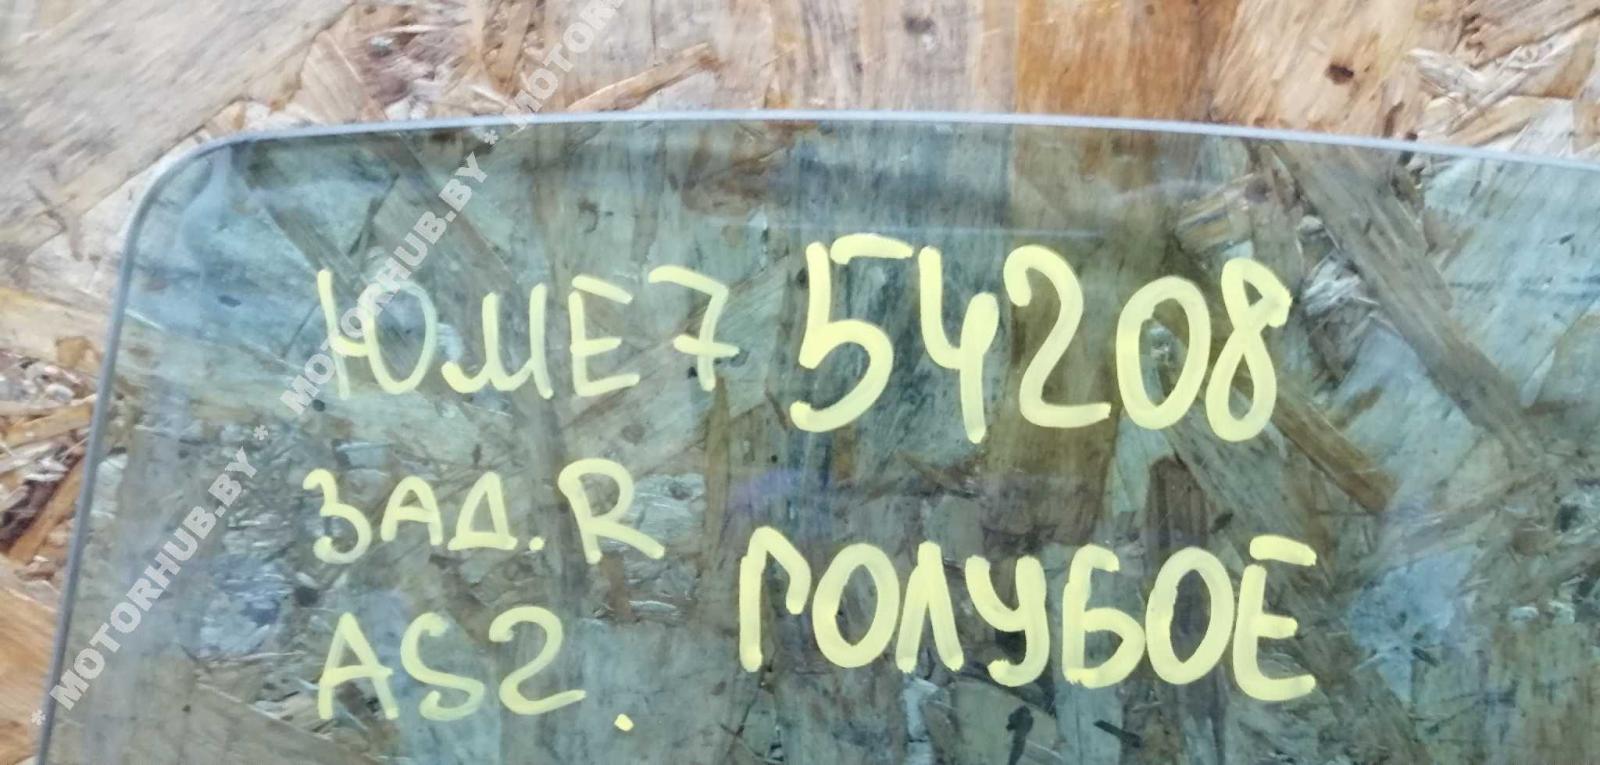 ЮМЕ7 54208
ЗАД. R
ГОЛУБОЕ
AS2.
* MOTORHUB.BY * MOTORHUB.BY * MOTORHUB.BY